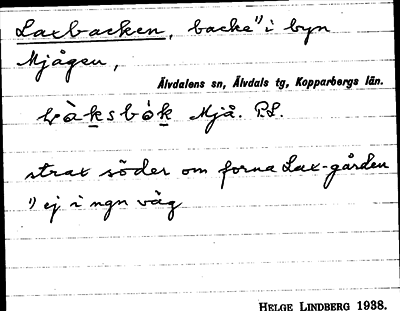 Laxbacken, backe¹⁾ i byn
Mjågen,
Älvdalens sn, Älvdals tg, Kopparbergs län.
Mjå. P.L.
strax söder om forna Lax-gården
¹⁾ ej i ngn väg
HELGE LINDBERG 1938.